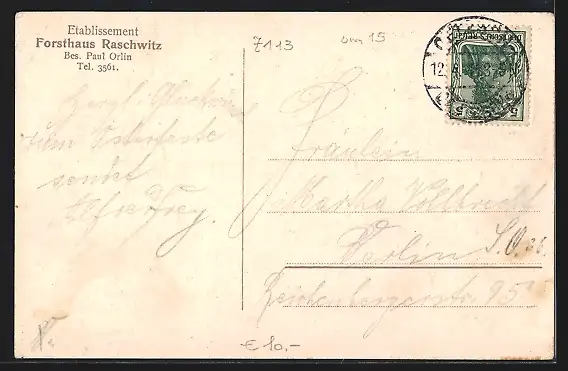 Etablissement
Forsthaus Raschwitz
Bes. Paul Orlin
Tel. 3561.
7113
15
Herzl. Glückwunsch
zum Osterfeste
sendet
Alfred Frey.
Fräulein
Martha Vollbrecht
Berlin S.O. 36.
Reichenbergerstr. 95
12.
5 5
€ 10,-